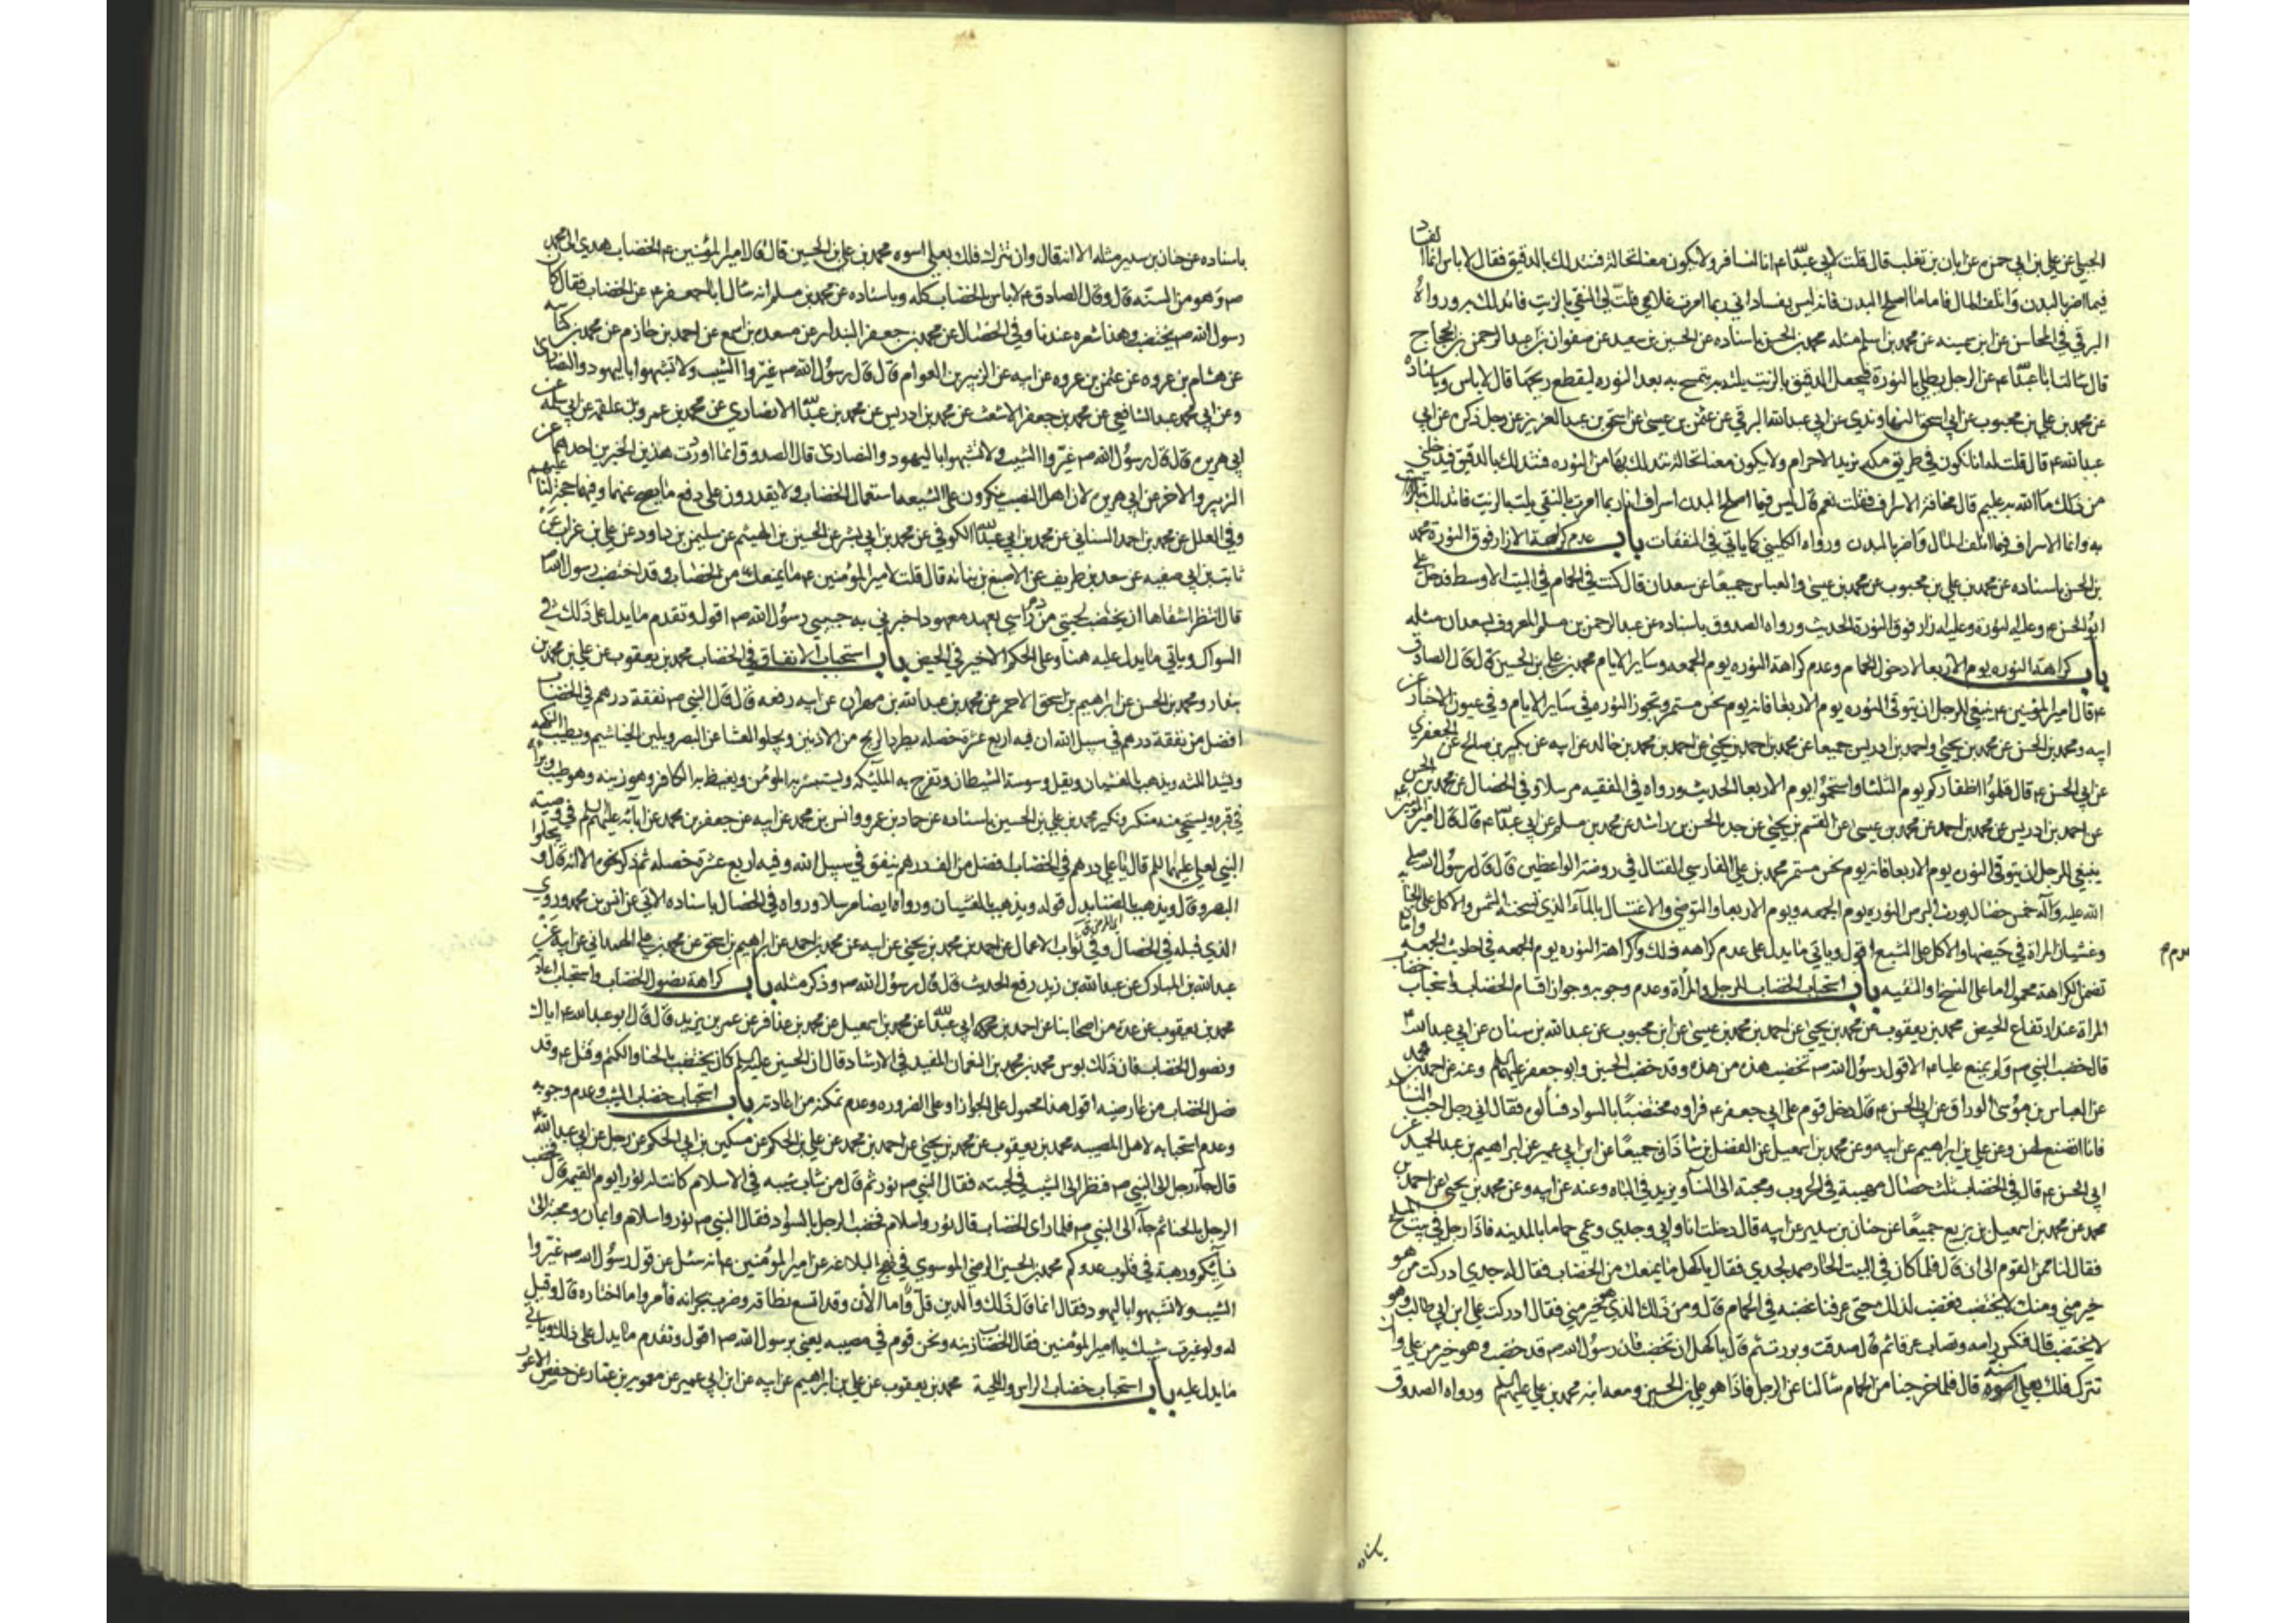 الجبلي عن علي بن ابي حمزه عن ابان بن تغلب قال قلت لابي عبد الله ع انا لنسافر ولا يكون معنا نخالة فنتدلك بالدقيق فقال لا باس انما الفساد
فيما اضر بالبدن واتلف المال فاما ما اصلح البدن فانه ليس بفساد اني ربما امرت غلامي فلت لي النقي بالزيت فاتدلك به ورواه
البرقي في المحاسن عن ابن عيينه عن محمد بن اسلم مثله محمد بن الحسن باسناده عن الحسين بن سعيد عن صفوان عن عبد الرحمن بن الحجاج
قال سالت ابا عبد الله ع عن الرجل يطلي بالنورة فيجعل الدقيق بالزيت يلته به يتمسح به بعد النوره ليقطع ريحها قال لا باس وباسناده
عن محمد بن علي بن محبوب عن ابي اسحق النهاوندي عن ابي عبد الله البرقي عن عثمن بن عيسى عن اسحق بن عبد العزيز عن رجل ذكره عن ابي
عبد الله ع قال قلت له انا نكون في طريق مكه نريد الاحرام ولا يكون معنا نخالة نتدلك بها من النوره فنتدلك بالدقيق فيدخلني
من ذلك ما الله به عليم قال مخافة الاسراف فقلت نعم قال ليس فيما اصلح البدن اسراف انا ربما امرت بالنقي يلت بالزيت فاتدلك
به وانما الاسراف فيما اتلف المال واضر بالبدن ورواه الكليني كما ياتي في النفقات باب عدم كراهة الازار فوق النورة محمد
بن الحسن باسناده عن محمد بن علي بن محبوب عن محمد بن عيسى والعباس جميعا عن سعدان قال كنت في الحمام في البيت الاوسط فدخل علي
ابو الحسن ع وعليه النورة وعليه ازار فوق النورة الحديث ورواه الصدوق باسناده عن عبد الرحمن بن مسلم المعروف بسعدان مثله
باب كراهة النوره يوم الاربعا لا دخول الحمام وعدم كراهة النوره يوم الجمعه وساير الايام محمد بن علي بن الحسين قال قال الصادق
ع قال امير المؤمنين ع ينبغي للرجل ان يتوقى النوره يوم الاربعا فانه يوم نحس مستمر وتجوز النوره في ساير الايام وفي عيون الاخبار عن
ابيه ومحمد بن الحسن عن محمد بن يحيى واحمد بن ادريس جميعا عن محمد بن احمد بن يحيى عن احمد بن محمد بن خالد عن ابيه عن بكر بن صالح عن الجعفري
عن ابي الحسن ع قال قلموا اظفاركم يوم الثلثا واستحموا يوم الاربعا الحديث ورواه في الفقيه مرسلا وفي الخصال عن محمد بن الحسن
عن احمد بن ادريس عن محمد بن احمد عن محمد بن عيسى عن القسم بن يحيى عن جده الحسن بن راشد عن محمد بن مسلم عن ابي عبد الله ع قال قال امير المؤمنين
ينبغي للرجل ان يتوقى النوره يوم الاربعا فانه يوم نحس مستمر محمد بن علي الفارسي الفتال في روضة الواعظين قال قال رسول الله صلى
الله عليه واله خمس خصال يورث البرص النوره يوم الجمعه ويوم الاربعا والتوضي والاغتسال بالماء الذي تسخنه الشمس والاكل على الجنابة
وغشيان المراة في حيضها والاكل على الشبع اقول وياتي ما يدل على عدم كراهه ذلك وكراهة النوره يوم الجمعه في احاديث الجمعه واما
تضمن الكراهة محمول اما على النسخ او التقيه باب استحباب الخضاب للرجل والمراة وعدم وجوبه وجواز اقسام الخضاب واستحباب خضاب
المراة عند ارتفاع الحيض محمد بن يعقوب عن محمد بن يحيى عن احمد بن محمد بن عيسى عن ابن محبوب عن عبد الله بن سنان عن ابي عبد الله ع
قال خضب النبي ص ولم يمنع عليا ع الا قول رسول الله ص تخضب هذه من هذه وقد خضب الحسين وابو جعفر عليهما السلم وعنه عن احمد بن محمد
عن العباس بن موسى الوراق عن ابي الحسن ع قال دخل قوم على ابي جعفر ع فراوه مختضبا بالسواد فسالوه فقال اني رجل احب النساء
فانا اتصنع لهن وعن علي بن ابراهيم عن ابيه وعن محمد بن اسمعيل عن الفضل بن شاذان جميعا عن ابن ابي عمير عن ابراهيم بن عبد الحميد عن
ابي الحسن ع قال في الخضاب ثلث خصال مهيبة في الحروب ومحبة الى النسآ ويزيد في الباه وعنه عن ابيه وعن محمد بن يحيى عن احمد بن
محمد عن محمد بن اسمعيل بن بزيع جميعا عن حنان بن سدير عن ابيه قال دخلت انا وابي وجدي وعمي حماما بالمدينه فاذا رجل في بيت المسلخ
فقال لنا ممن القوم الى ان قال فلما كان في البيت الحار صمد لجدي فقال يا كهل ما يمنعك من الخضاب فقال له جدي ادركت من هو
خير مني ومنك لا يختضب فغضب لذلك حتى عرفنا غضبه في الحمام قال ومن ذلك الذي هو خير مني فقال ادركت علي ابن ابي طالب وهو
لا يختضب قال فنكس راسه وتصاب عرقا ثم قال صدقت وبررت ثم قال يا كهل ان تختضب فان رسول الله ص قد خضب وهو خير من علي وان
تترك فلك بعلي اسوة قال فلما خرجنا من الحمام سالنا عن الرجل فاذا هو علي بن الحسين ومعه ابنه محمد بن علي عليهم السلم ورواه الصدوق
باسناده
باسناده عن حنان بن سدير مثله الا انه قال وان تترك فلك بعلي اسوه محمد بن علي بن الحسين قال قال امير المؤمنين ع الخضاب هدي الى محمد
ص وهو من السنه قال وقال الصادق ع لا باس بالخضاب كله وباسناده عن محمد بن مسلم انه سال ابا جعفر ع عن الخضاب فقال كان
رسول الله ص يختضب وهذا شعره عندنا وفي الخصال عن محمد بن جعفر البندار عن مسعده بن اسمع عن احمد بن حازم عن محمد بن كناسه
عن هشام بن عروه عن عثمن بن عروه عن ابيه عن الزبير بن العوام قال قال رسول الله ص غيروا الشيب ولا تشبهوا باليهود والنصارى
وعن ابي محمد عبد الشافعي عن محمد بن جعفر الاشعث عن محمد بن ادريس عن محمد بن عبد الله الانصاري عن محمد بن عمرو بن علقمه عن ابي سلمه عن
ابي هريره قال قال رسول الله ص غيروا الشيب ولا تشبهوا باليهود والنصارى قال الصدوق انما اوردت هذين الخبرين احدهما عن
الزبير والاخر عن ابي هريره لان اهل النصب ينكرون على الشيعه استعمال الخضاب ولا يقدرون على دفع ما يصح عنهما وفيهما حجة لنا عليهم
وفي العلل عن محمد بن احمد السناني عن محمد بن ابي عبد الله الكوفي عن محمد بن ابي بشر عن الحسين بن الهيثم عن سليمن بن داود عن علي بن غراب عن
ثابت بن ابي صفيه عن سعد بن طريف عن الاصبغ بن نباته قال قلت لامير المؤمنين ع ما يمنعك من الخضاب وقد اختضب رسول الله ص
قال انتظر اشقاها ان يخضب لحيتي من دم راسي بعهد معهود اخبرني به حبيبي رسول الله ص اقول وتقدم ما يدل على ذلك في
السواك وياتي ما يدل عليه هنا وعلى الحكم الاخير في الحيض باب استحباب الانفاق في الخضاب محمد بن يعقوب عن علي بن محمد بن
بندار ومحمد بن الحسن عن ابراهيم بن اسحق الاحمر عن محمد بن عبد الله بن مهران عن ابيه رفعه قال قال النبي ص نفقة درهم في الخضاب
افضل من نفقة درهم في سبيل الله ان فيه اربع عشرة خصله يطرد الريح من الاذنين ويجلو الغشا عن البصر ويلين الخياشيم ويطيب النكهه
ويشد اللثه ويذهب بالغشيان ويقل وسوسة الشيطان وتفرح به الملئكه ويستبشر به المؤمن ويغيظ به الكافر وهو زينه وهو طيب وبراه
في قبره ويستحيي منه منكر ونكير محمد بن علي بن الحسين باسناده عن حماد بن عمرو وانس بن محمد عن ابيه عن جعفر بن محمد عن ابآئه عليهم السلم في وصيه
النبي لعلي عليهما السلم قال يا علي درهم في الخضاب افضل من الف درهم ينفق في سبيل الله وفيه اربع عشرة خصله ثم ذكر نحوه الا انه قال ويجلوا
البصر وقال ويذهب بالضنا بدل قوله ويذهب بالغشيان ورواه ايضا مرسلا ورواه في الخصال باسناده الاتي عن انس بن محمد وروى
الذي قبله في الخصال وفي ثواب الاعمال عن احمد بن محمد بن يحيى عن ابيه عن محمد بن احمد عن ابراهيم بن اسحق عن محمد بن علي الهمداني عن ابيه عن
عبد الله بن المبارك عن عبد الله بن زيد رفع الحديث قال قال رسول الله ص وذكر مثله باب كراهة نصول الخضاب واستحباب اعادته
محمد بن يعقوب عن عدة من اصحابنا عن احمد بن ابي عبد الله عن محمد بن اسمعيل عن محمد بن عذافر عن عمر بن يزيد قال قال ابو عبد الله ع اياك
ونصول الخضاب فان ذلك بوس محمد بن محمد بن النعمان المفيد في الارشاد قال ان الحسين عليه السلم كان يختضب بالحنا والكتم وقتل ع وقد
نصل الخضاب من عارضيه اقول هذا محمول على الجواز او على الضروره وعدم تمكنه من اعادته باب استحباب خضاب الشيب وعدم وجوبه
وعدم استحبابه لاهل المصيبه محمد بن يعقوب عن محمد بن يحيى عن احمد بن محمد عن علي بن الحكم عن مسكين بن ابي الحكم عن رجل عن ابي عبد الله ع
قال جآء رجل الى النبي ص فنظر الى الشيب في لحيته فقال النبي ص نور ثم قال من شاب شيبه في الاسلام كانت له نورا يوم القيمه قال فخضب
الرجل بالحنا ثم جآء الى النبي ص فلما راى الخضاب قال نور واسلام فخضب الرجل بالسواد فقال النبي ص نور واسلام وايمان ومحبة الى
نسآئكم ورهبة في قلوب عدوكم محمد بن الحسين الرضي الموسوي في نهج البلاغه عن امير المؤمنين ع انه سئل عن قول رسول الله ص غيروا
الشيب ولا تشبهوا باليهود فقال انما قال ذلك والدين قل واما الان وقد اتسع نطاقه وضرب بجرانه فامرؤ وما اختاره قال وقيل
له ولو غيرت شيبك يا امير المؤمنين فقال الخضاب زينه ونحن قوم في مصيبه يعني برسول الله ص اقول وتقدم ما يدل على ذلك وياتي
ما يدل عليه باب استحباب خضاب الراس واللحية محمد بن يعقوب عن علي بن ابراهيم عن ابيه عن ابن ابي عمير عن معويه بن عمار عن حفص الاعور